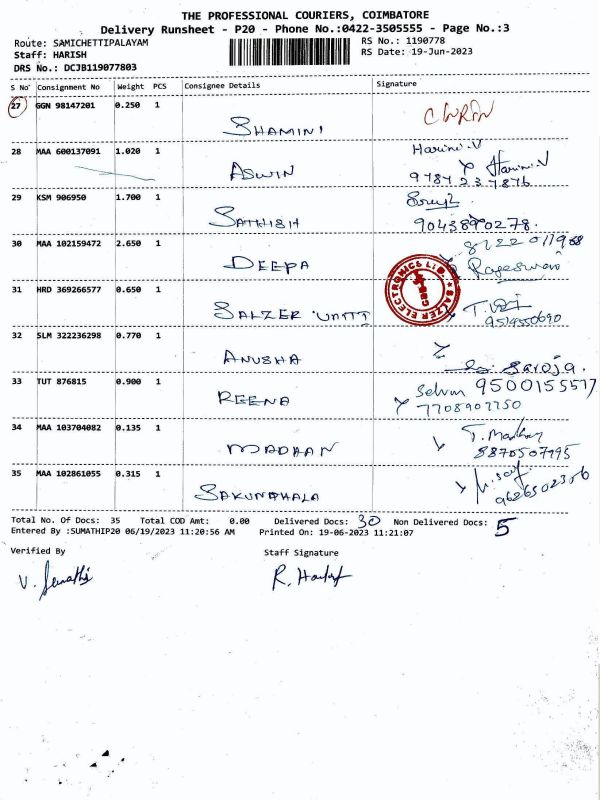 THE PROFESSIONAL COURIERS, COIMBATORE
Delivery Runsheet - P20 - Phone No.:0422-3505555 - Page No.:3
Route: SAMICHETTIPALAYAM RS No.: 1190778
Staff: HARISH RS Date: 19-Jun-2023
DRS No.: DCJB119077803
S No Consignment No Weight PCS Consignee Details Signature
27 GGN 98147201 0.250 1
SHAMINI
28 MAA 600137091 1.020 1 Harini.V
ASWIN Harini.V
9787237876
29 KSM 906950 1.700 1
SATHISH 9043890278.
30 MAA 102159472 2.650 1
DEEPA Rajeswari
31 HRD 369266577 0.650 1 SALZER ELECTRONICS LTD.
SALZER UNIT I
9514550690
32 SLM 322236298 0.770 1
ANUSHA Saroja.
33 TUT 876815 0.900 1 Selvm 9500155517
REENA 7708907750
34 MAA 103704082 0.135 1
MADHAN 8870507795
35 MAA 102861055 0.315 1
SAKUNTHALA 9626502356
Total No. Of Docs: 35 Total COD Amt: 0.00 Delivered Docs: 30 Non Delivered Docs: 5
Entered By :SUMATHIP20 06/19/2023 11:20:56 AM Printed On: 19-06-2023 11:21:07
Verified By Staff Signature
V. Sumathi R. Harish